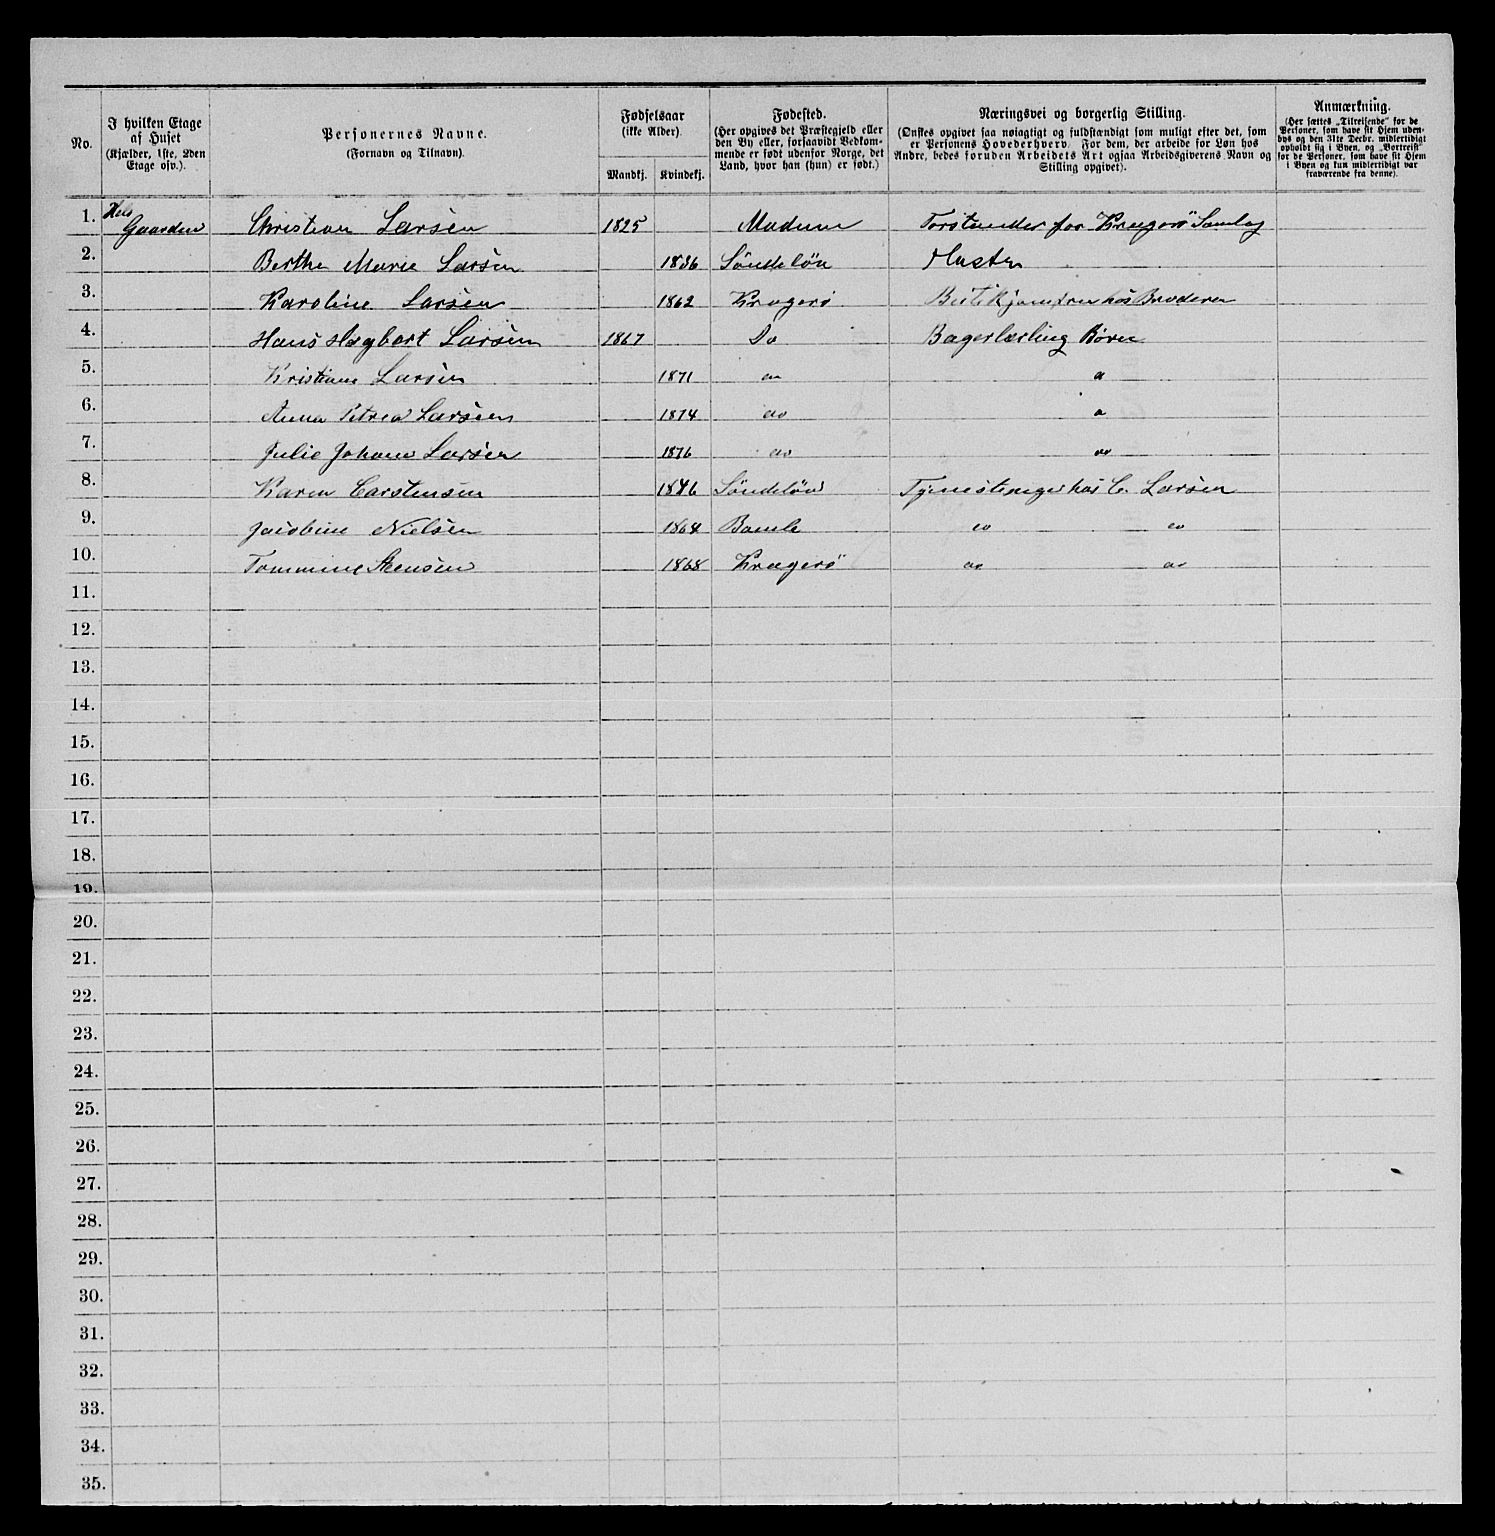 No.
I hvilken Etage
af Huset
(Kjælder, 1ste, 2den
Etage osv.).
Personernes Navne.
(Fornavn og Tilnavn).
Fødselsaar
(ikke Alder).
Mandkj. Kvindekj.
Fødested.
(Her opgives det Præstegjeld eller
den By eller, forsaavidt Vedkom-
mende er født udenfor Norge, det
Land, hvor han (hun) er født.)
Næringsvei og borgerlig Stilling.
(Ønskes opgivet saa nøiagtigt og fuldstændigt som muligt efter det, som
er Personens Hovederhverv. For dem, der arbeide for Løn hos
Andre, bedes foruden Arbeidets Art ogsaa Arbeidsgiverens Navn og
Stilling opgivet).
Anmærkning.
(Her sættes „Tilreisende" for de
Personer, som have sit Hjem uden-
bys og den 31te Decbr. midlertidigt
opholdt sig i Byen, og „Bortreist"
for de Personer, som have sit Hjem
i Byen og kun midlertidigt var
fraværende fra denne).
1. Hele Gaarden Christian Larsen 1825 Modum Forstander for Kragerø Samlag
2. Berthe Marie Larsen 1836 Søndeløv Hustru
3. Karoline Larsen 1862 Kragerø hos Broderen
4. Hans Hagbart Larsen 1867 Do Bagerlærling Børn
5. Kristiane Larsen 1871 do
6. Anna Petrea Larsen 1874 do
7. Julie Johane Larsen 1876 do do
8. Karen Carstensen 1846 Søndeløv Tjenestepige hos C. Larsen
9. Jacobine Nielsen 1864 Bamle do do
10. Tommine Stensen 1868 Kragerø do do
11.
12.
13.
14.
15.
16.
17.
18.
19.
20.
21.
22.
23.
24.
25.
26.
27.
28.
29.
30.
31.
32.
33.
34.
35.